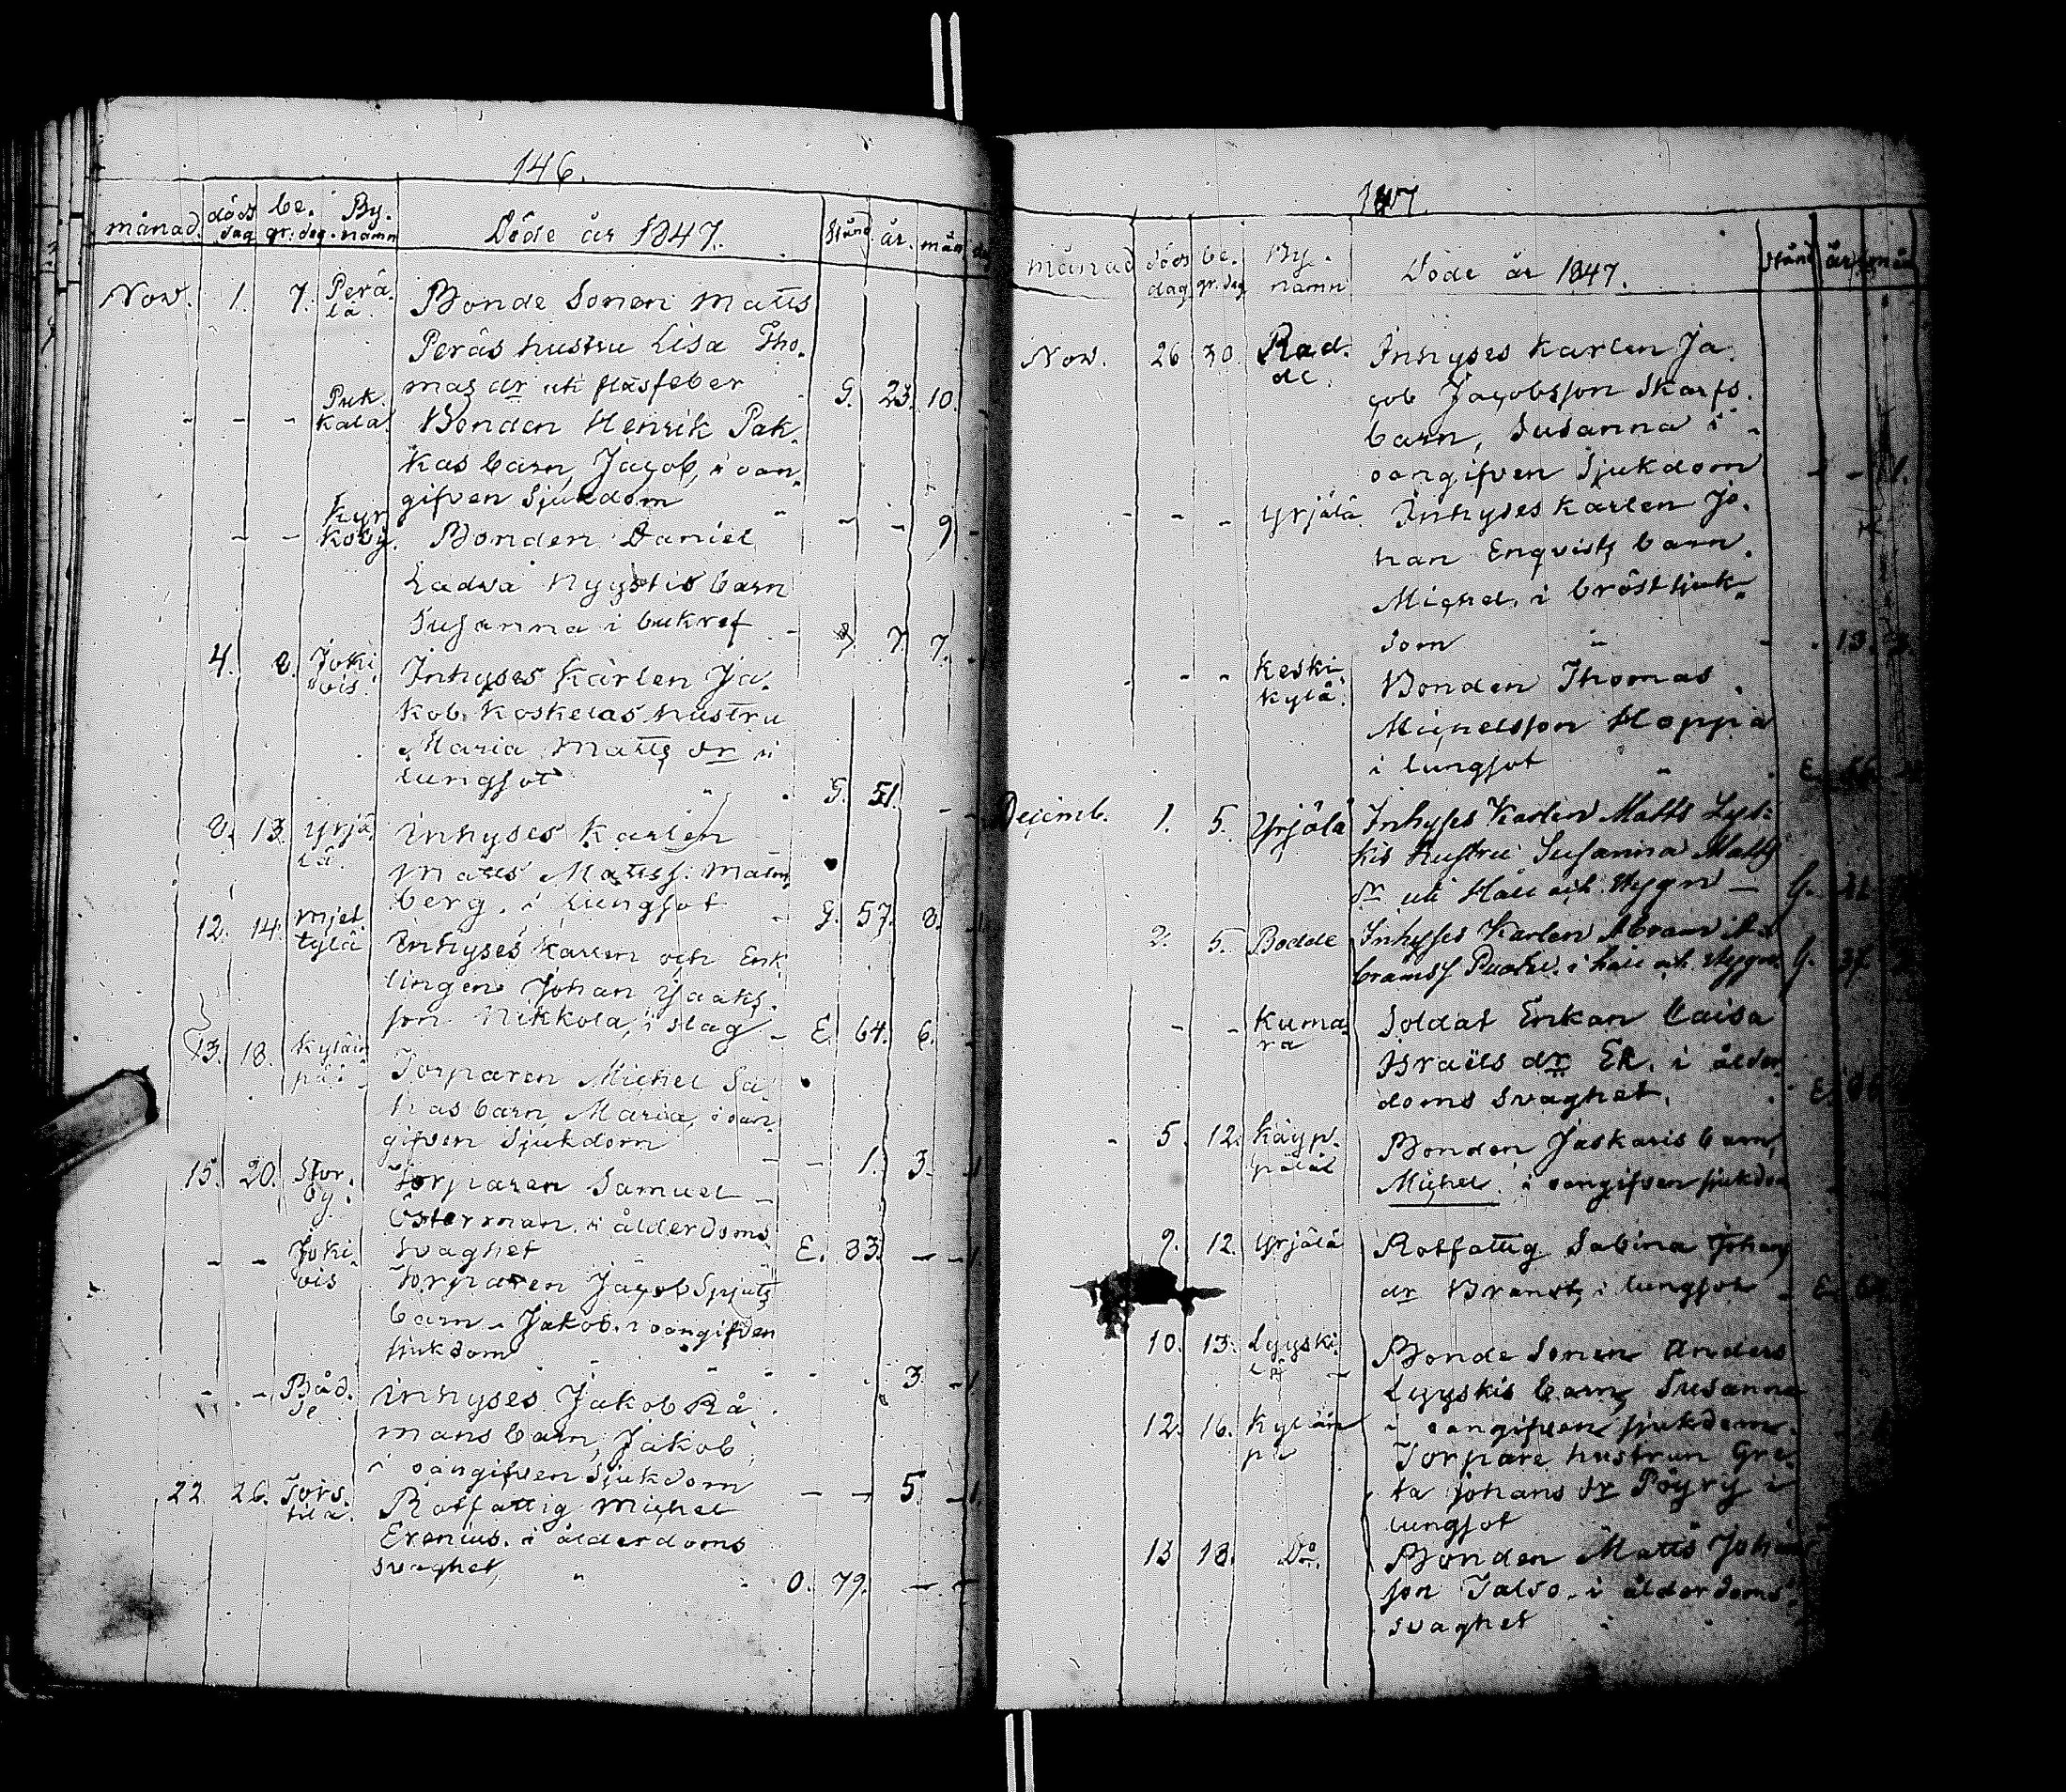 146.
månad. döds dag be. gr: dag. By. namn Döde år 1847. stånd. år. mån.
Nov. 1. 7. Perä. lä. Bonde Sonen Matts
Peräs hustru Lisa Tho.
mas dr uti fläsfeber G. 23. 10.
- - - Puk. kala. Bonden Henrik Pak.
kas barn, Jacob, i oan.
gifven Sjukdom - - 9. -
- - Kyr koby. Bonden Daniel
Ladva Nyystis barn
Susanna i bukref - 7. 7.
4. 8. Joki vis. Inhyses Karlen Ja.
kob. Koskelas hustru
Maria Matts dr i
lungsot G. 51. -
8. 13. Yrjä. lä. Inhyses Karlen
Matts Mattss. Malm
berg. i lungsot - G. 57. 8.
12. 14. Mjet tylä Inhyses Karlen och Enk
lingen Johan Jaaks.
son Nikkola, i slag - E. 64. 6.
13. 18. Kyläm pää Torparen Michel Sa
has barn, Maria, i oan.
gifven Sjukdom - - 1. 3.
15. 20. Stor. by. Torparen Samuel -
Österman. i ålderdoms
svaghet E. 83. - -
- - Joki vis Torparen Jacob Spjuts
barn. Jakob. i oangifven
sjukdom - - 3. -
- - Båd. de Inhyses Jakob Rå.
mans barn, Jakob
i oangifven Sjukdom - - 5. -
22. 26. Tors. tila. Rotfattig Michel
Erenius. i ålderdoms
svaghet, O. 79. - -
147.
månad döds dag be. gr. dag By. namn Döde år 1847. stånd år. mån
Nov. 26 30. Rad. de. Inhyses Karlen Ja.
cob Jacobsson Skarfs.
barn, Susanna i
oangifven Sjukdom - -
- - - Yrjälä Inhyses Karlen Jo.
han Enqvists barn.
Michel. i bröstsjuk.
dom - . 13.
- - - Keski. kylä. Bonden Thomas
Michelsson Hoppa
i lungsot E.
Dejemb. 1. 5. Yrjälä Inhyses Karlen Matts Lys.
kis hustru Susanna Matts
dr uti Håll och stygn - G.
2. 5. Bodde Inhyses Karlen Abram A
bramss i håll och stygn. G. 37.
- - Kuma ra Soldat Enkan Caisa
Israels dr Ek. i ålder.
doms svaghet. E.
- 5. 12. Käyp. pälä Bonden Jaskaris barn,
Michel i oangifven sjukdom
9. 12. Yrjälä Rotfattig Sabina Johans
dr Branst, i lungsot - E.
10. 13. Lyyski. lä - Bonde Sonen Anders
Lyyskis barn, Susanna
i oangifven sjukdom.
12. 16. Kylän pä Torpare hustrun Gre.
ta Johans dr Pöyry i
lungsot
13 18. Do Bonden Matts Johans
son Talso. i ålderdoms
svaghet